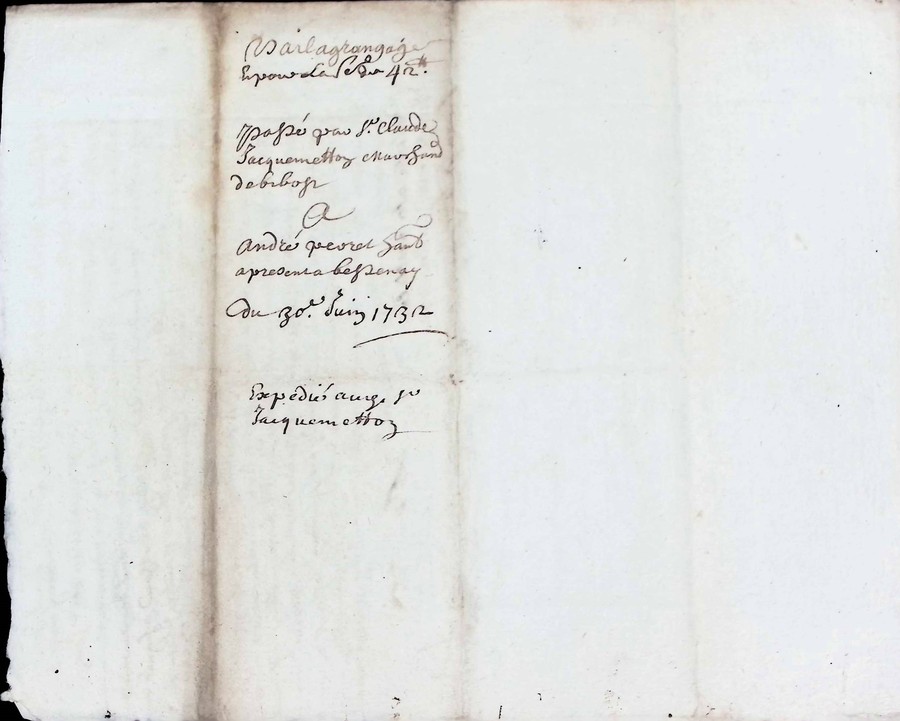 Bail a grangage
Et pour la so.e de 42.tt
Passé par Sr. Claude
Jacquemetton Marchand
de bibost
A
André peoret
a present a bessenay
Du 30.e Juin 1732
Expedié aud. Sr
Jacquemetton